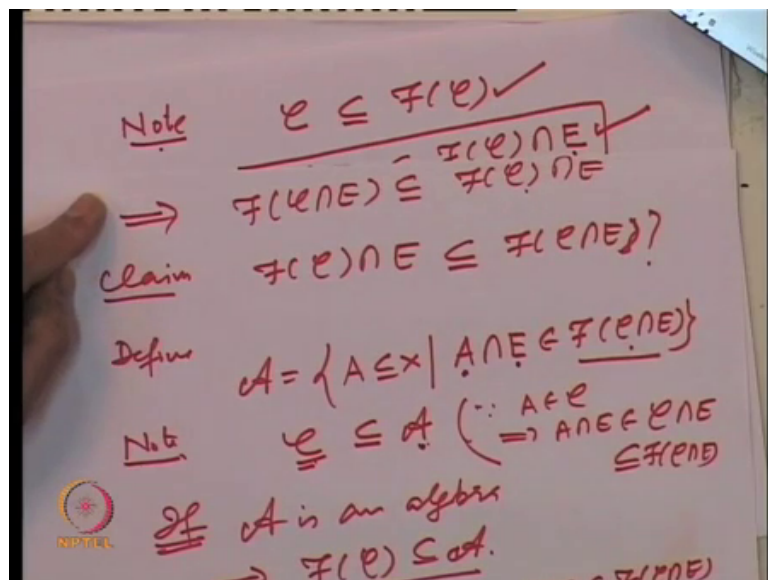 Note 𝒞 ⊆ ℱ(𝒞) ✓
ℱ(𝒞) ∩ E ✓
⟹ ℱ(𝒞∩E) ⊆ ℱ(𝒞) ∩ E
Claim ℱ(𝒞) ∩ E ⊆ ℱ(𝒞∩E)}?
Define 𝒜 = {A ⊆ X | A ∩ E ∈ ℱ(𝒞∩E)}
Note 𝒞 ⊆ 𝒜 (∵ A ∈ 𝒞
⟹ A∩E ∈ 𝒞∩E
⊆ ℱ(𝒞∩E)
If 𝒜 is an algebra
⟹ ℱ(𝒞) ⊆ 𝒜.
ℱ(𝒞∩E)
NPTEL